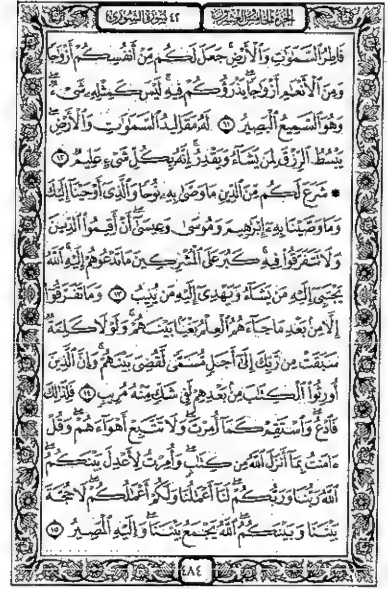 الجزء الخامس والعشرون
٤٢ سورة الشورى
فَاطِرُ السَّمَٰوَٰتِ وَالْأَرْضِ جَعَلَ لَكُم مِّنْ أَنفُسِكُمْ أَزْوَٰجًا
وَمِنَ الْأَنْعَٰمِ أَزْوَٰجًا يَذْرَؤُكُمْ فِيهِ لَيْسَ كَمِثْلِهِ شَىْءٌ
وَهُوَ السَّمِيعُ الْبَصِيرُ ١١ لَهُ مَقَالِيدُ السَّمَٰوَٰتِ وَالْأَرْضِ
يَبْسُطُ الرِّزْقَ لِمَن يَشَآءُ وَيَقْدِرُ إِنَّهُ بِكُلِّ شَىْءٍ عَلِيمٌ ١٢
* شَرَعَ لَكُم مِّنَ الدِّينِ مَا وَصَّىٰ بِهِ نُوحًا وَالَّذِى أَوْحَيْنَا إِلَيْكَ
وَمَا وَصَّيْنَا بِهِ إِبْرَٰهِيمَ وَمُوسَىٰ وَعِيسَىٰ أَنْ أَقِيمُوا الدِّينَ
وَلَا تَتَفَرَّقُوا فِيهِ كَبُرَ عَلَى الْمُشْرِكِينَ مَا تَدْعُوهُمْ إِلَيْهِ اللَّهُ
يَجْتَبِى إِلَيْهِ مَن يَشَآءُ وَيَهْدِى إِلَيْهِ مَن يُنِيبُ ١٣ وَمَا تَفَرَّقُوا
إِلَّا مِن بَعْدِ مَا جَآءَهُمُ الْعِلْمُ بَغْيًا بَيْنَهُمْ وَلَوْلَا كَلِمَةٌ
سَبَقَتْ مِن رَّبِّكَ إِلَىٰ أَجَلٍ مُّسَمًّى لَّقُضِىَ بَيْنَهُمْ وَإِنَّ الَّذِينَ
أُورِثُوا الْكِتَٰبَ مِن بَعْدِهِمْ لَفِى شَكٍّ مِّنْهُ مُرِيبٍ ١٤ فَلِذَٰلِكَ
فَادْعُ وَاسْتَقِمْ كَمَا أُمِرْتَ وَلَا تَتَّبِعْ أَهْوَآءَهُمْ وَقُلْ
ءَامَنتُ بِمَا أَنزَلَ اللَّهُ مِن كِتَٰبٍ وَأُمِرْتُ لِأَعْدِلَ بَيْنَكُمُ
اللَّهُ رَبُّنَا وَرَبُّكُمْ لَنَا أَعْمَٰلُنَا وَلَكُمْ أَعْمَٰلُكُمْ لَا حُجَّةَ
بَيْنَنَا وَبَيْنَكُمُ اللَّهُ يَجْمَعُ بَيْنَنَا وَإِلَيْهِ الْمَصِيرُ ١٥
٤٨٤